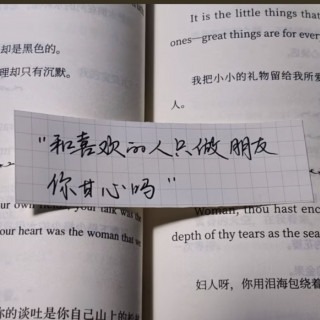 却是黑色的。
理却只有沉默。
It is the little things that
ones—great things are for every
我把小小的礼物留给我所爱
人。
"和喜欢的人只做朋友
你甘心吗"
your own heart, your talk was the
your heart was the woman that we
你的谈吐是你自己山上的
Woman, thou hast enc
depth of thy tears as the sea
妇人呀，你用泪海包绕着